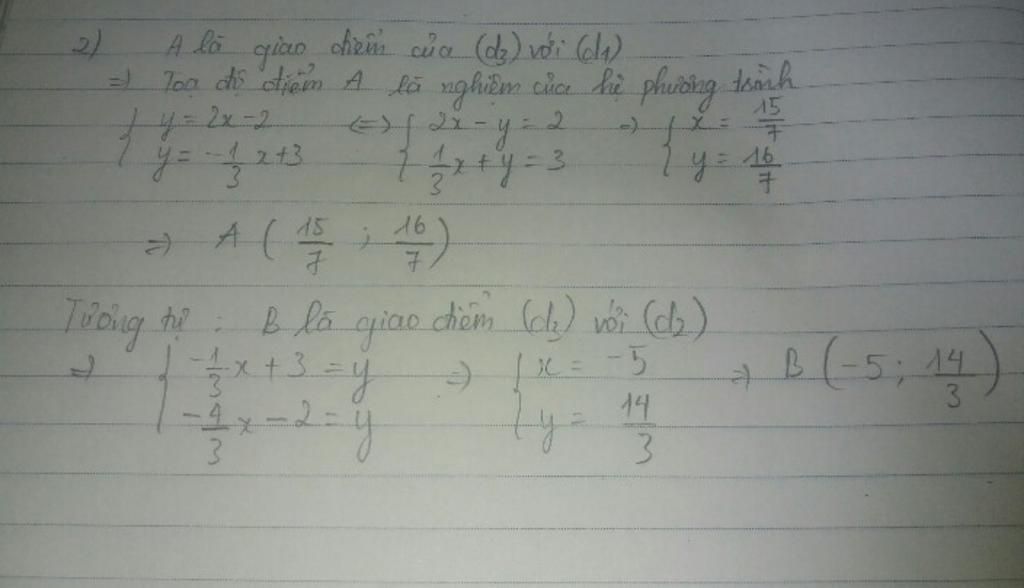 2) A là giao điểm của (d3) với (d1)
=> Toạ độ điểm A là nghiệm của hệ phương trình
{ y = 2x - 2 <=> { 2x - y = 2 => { x = 15/7
y = -1/3 x + 3 1/3 x + y = 3 y = 16/7
=> A ( 15/7 ; 16/7 )
Tương tự : B là giao điểm (d3) với (d2)
=> { -1/3 x + 3 = y => { x = -5 => B ( -5 ; 14/3 )
-4/3 x - 2 = y y = 14/3